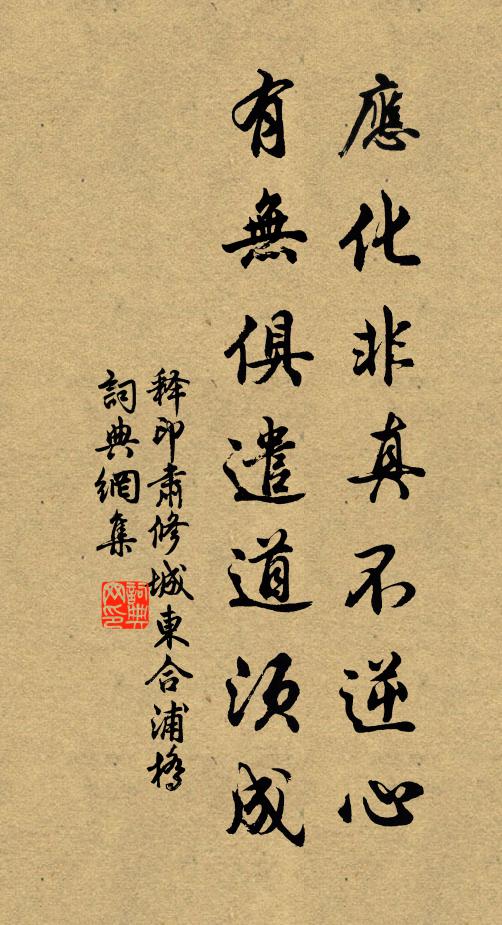 應化非真不逆心
有無俱遣道須成
释印肅修城東合浦橋
詞典網集
詞典网印